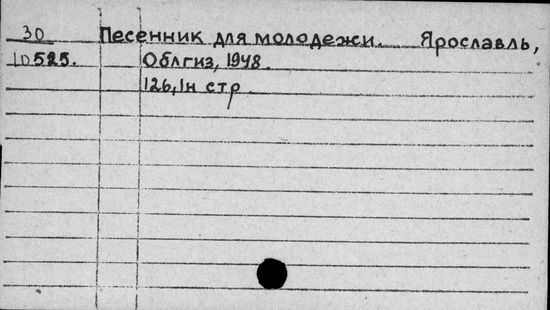 30 Песенник для молодежи. Ярославль,
10525. Облгиз, 1948.
126,1н стр.